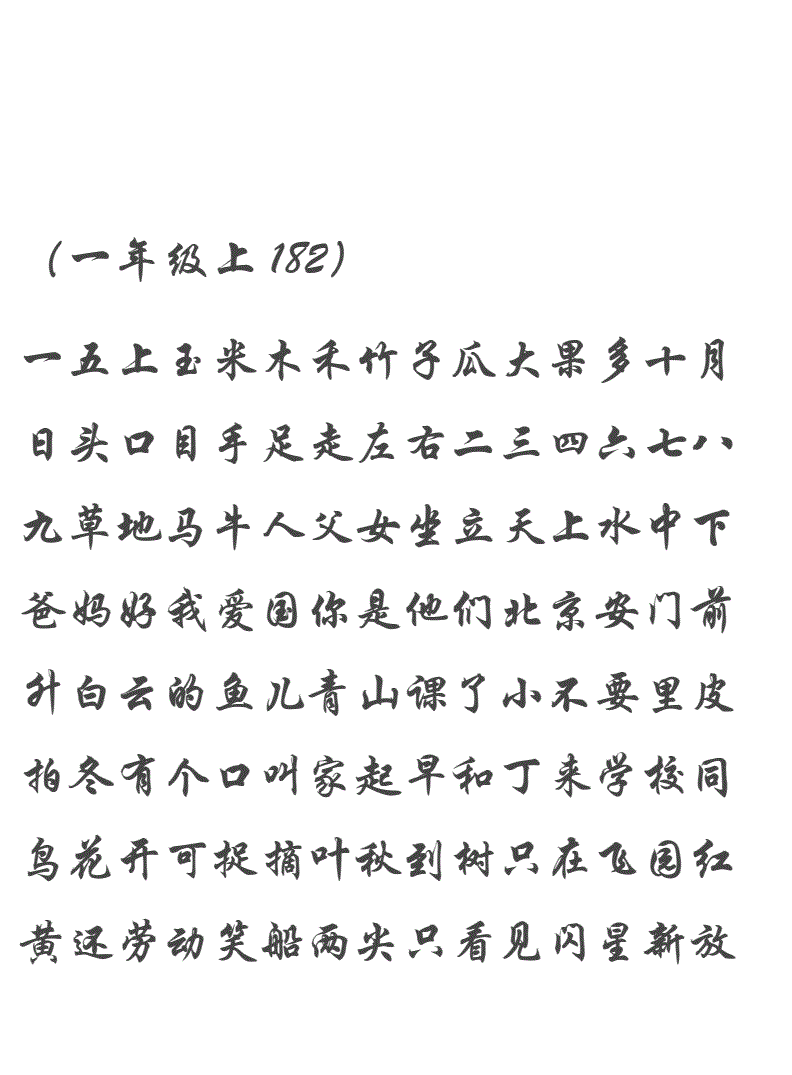 （一年级上182）
一五上玉米木禾竹子瓜大果多十月
日头口目手足走左右二三四六七八
九草地马牛人父女坐立天上水中下
爸妈好我爱国你是他们北京安门前
升白云的鱼儿青山课了小不要里皮
拍冬有个口叫家起早和丁来学校同
鸟花开可捉摘叶秋到树只在飞园红
黄还劳动笑船两尖只看见闪星新放